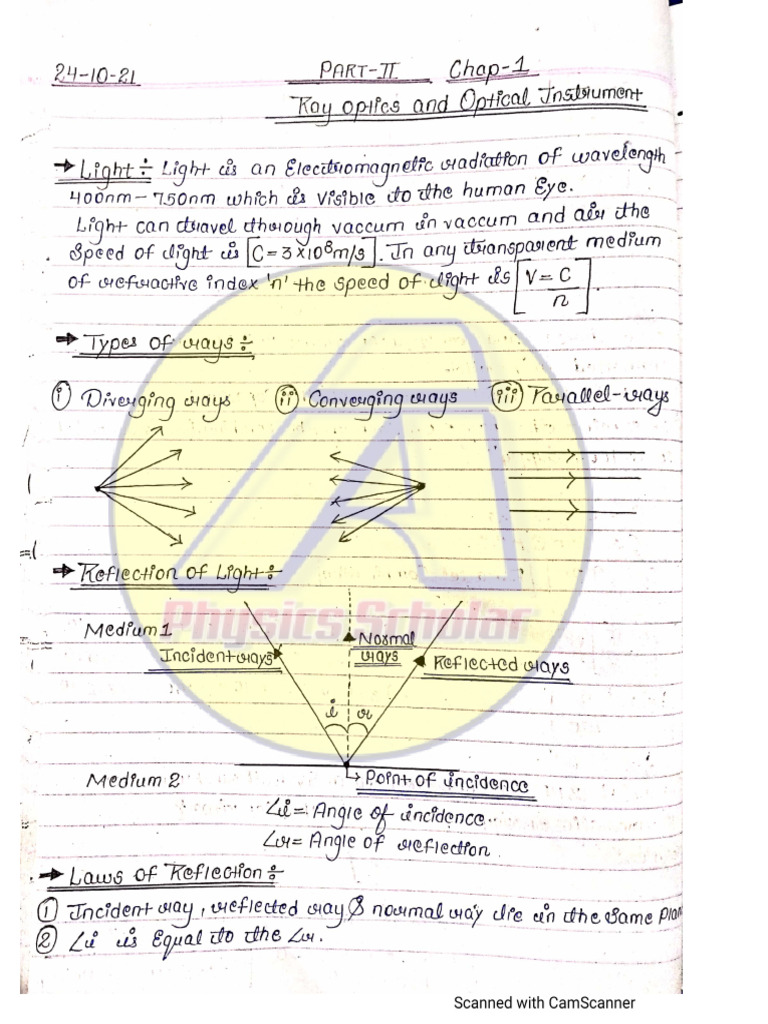 24-10-21 PART-II Chap-1
Ray optics and Optical Instrument
→ Light ÷ Light is an Electromagnetic radiation of wavelength
400nm - 750nm which is visible to the human Eye.
Light can travel through vaccum in vaccum and air the
Speed of light is [C = 3 × 10⁸ m/s]. In any transparent medium
of refractive index 'n' the speed of light is [V = C/n].
→ Types of rays ÷
(i) Diverging rays (ii) Converging rays (iii) Parallel-rays
→ Reflection of Light ÷
Physics Scholar
Medium 1
Incident rays
Normal rays
Reflected rays
i r
Medium 2
Point of incidence
∠i = Angle of incidence
∠r = Angle of reflection
→ Laws of Reflection ÷
① Incident ray, reflected ray, & normal ray lie in the Same Plan
② ∠i is Equal to the ∠r.
Scanned with CamScanner